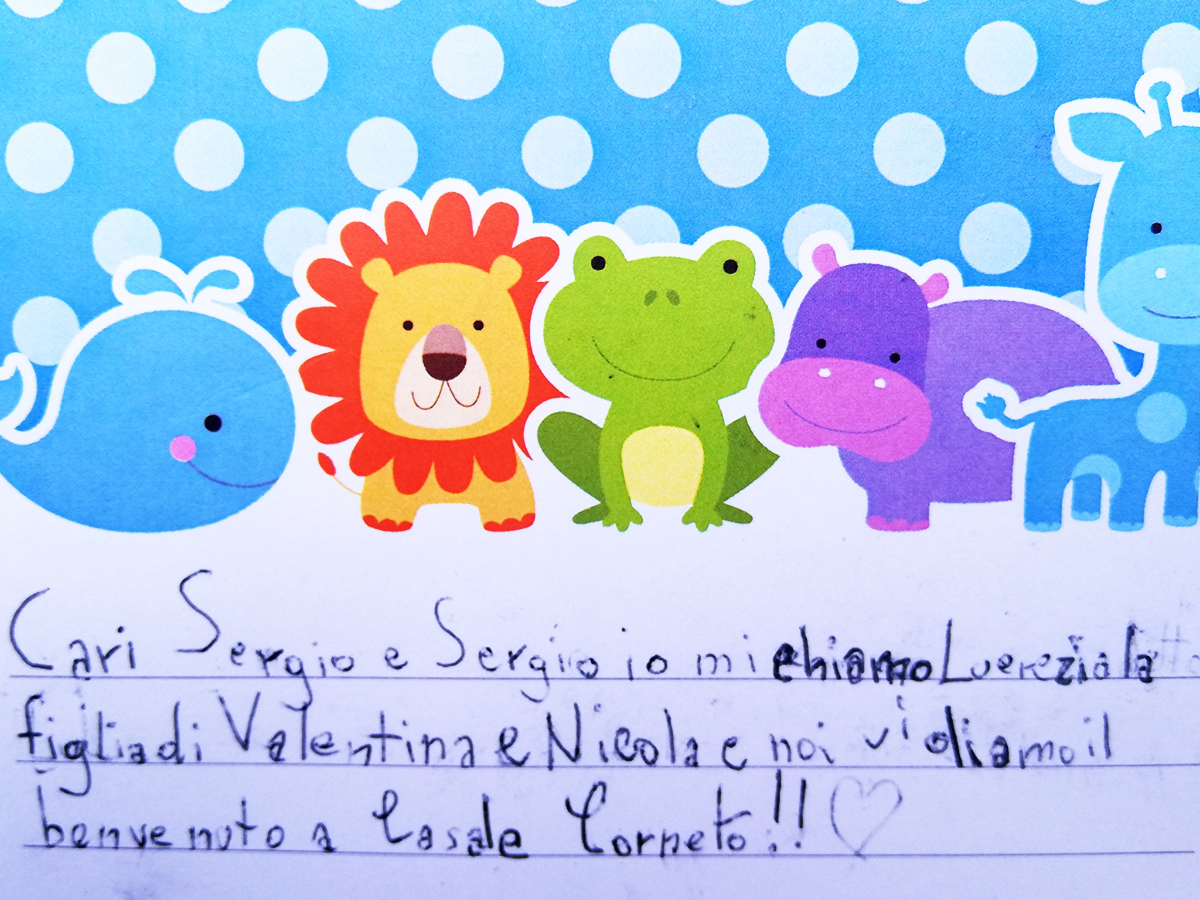 Cari Sergio e Sergio io mi chiamo Lucrezia la
figlia di Valentina e Nicola e noi vi diamo il
benvenuto a Casale Corneto!!